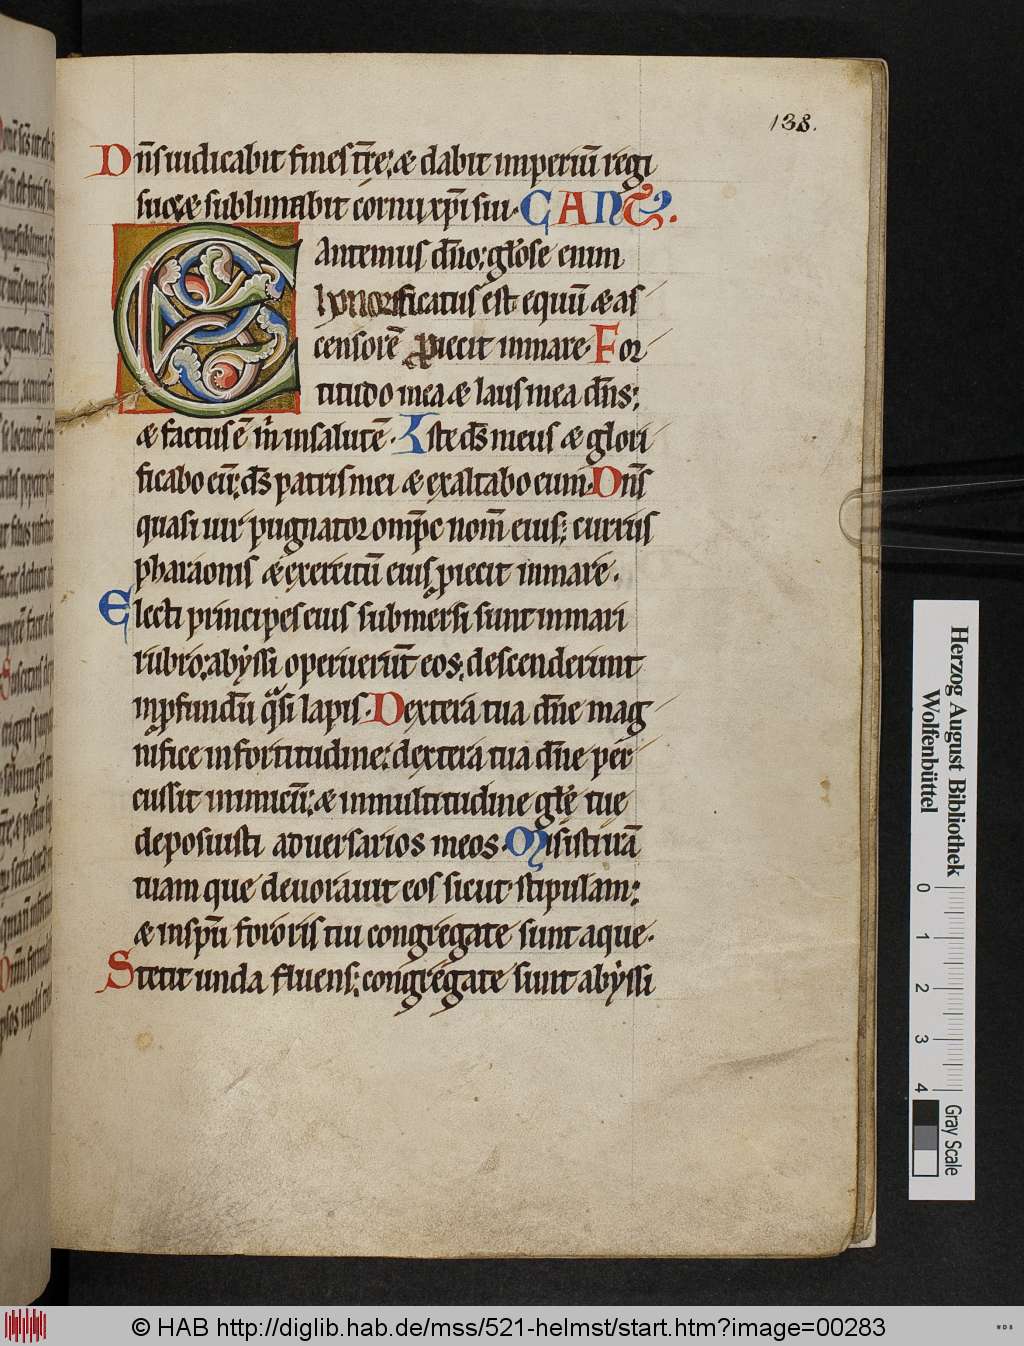 138.
Dn̄s iudicabit fines tr̄e; & dabit imperiū regi
suo; & sublimabit cornu xp̄i sui. CANT̄
Cantemus dn̄o; gl̄ose enim
honorificatus est equū & as
censorē ꝓiecit inmare. For
titudo mea & laus mea dn̄s;
& factus ē m̄ insalutē. Iste ds̄ meus & glori
ficabo eū; ds̄ patris mei & exaltabo eum. Dn̄s
quasi uir pugnator omp̄c nom̄ eius; currus
pharaonis & exercitū eius ꝓiecit inmare.
Electi principes eius submersi sunt inmari
rubro; abyssi operuerūt eos; descenderunt
inꝓfundū qᷓsi lapis. Dextera tua dn̄e mag
nifice in fortitudine; dextera tua dn̄e per
cussit inimicū; & inmultitudine gl̄e tue
deposuisti aduersarios meos. Misisti irā
tuam que deuorauit eos sicut stipulam;
& insp̄u fororis tui congregate sunt aque.
Stetit unda fluens; congregate sunt abyssi
Herzog August Bibliothek
Wolfenbüttel
0 1 2 3 4
Gray Scale
© HAB http://diglib.hab.de/mss/521-helmst/start.htm?image=00283